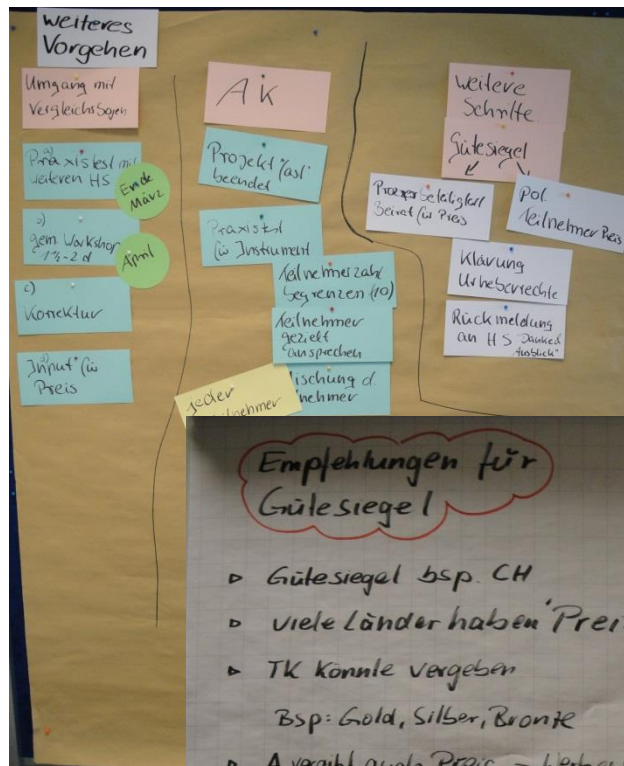 weiteres
Vorgehen
Umgang mit
Vergleichsbögen
a)
Praxistest mit
weiteren HS
Ende
März
b)
gem. Workshop
1½-2 d
April
c)
Korrektur
d)
Input für
Preis
AK
Projekt fast
beendet
Praxistest
für Instrument
Teilnehmerzahl
begrenzen (10)
Teilnehmer
gezielt
ansprechen
Mischung d.
Teilnehmer
jeder
weitere
Schritte
Gütesiegel
Beirat für Preis
pol.
Teilnehmer Preis
Klärung
Urheberrechte
Rückmeldung
an HS "Danke &
Ausblick"
Empfehlungen für
Gütesiegel
Gütesiegel bsp. CH
viele Länder haben "Prei
TK könnte vergeben
Bsp: Gold, Silber, Bronze